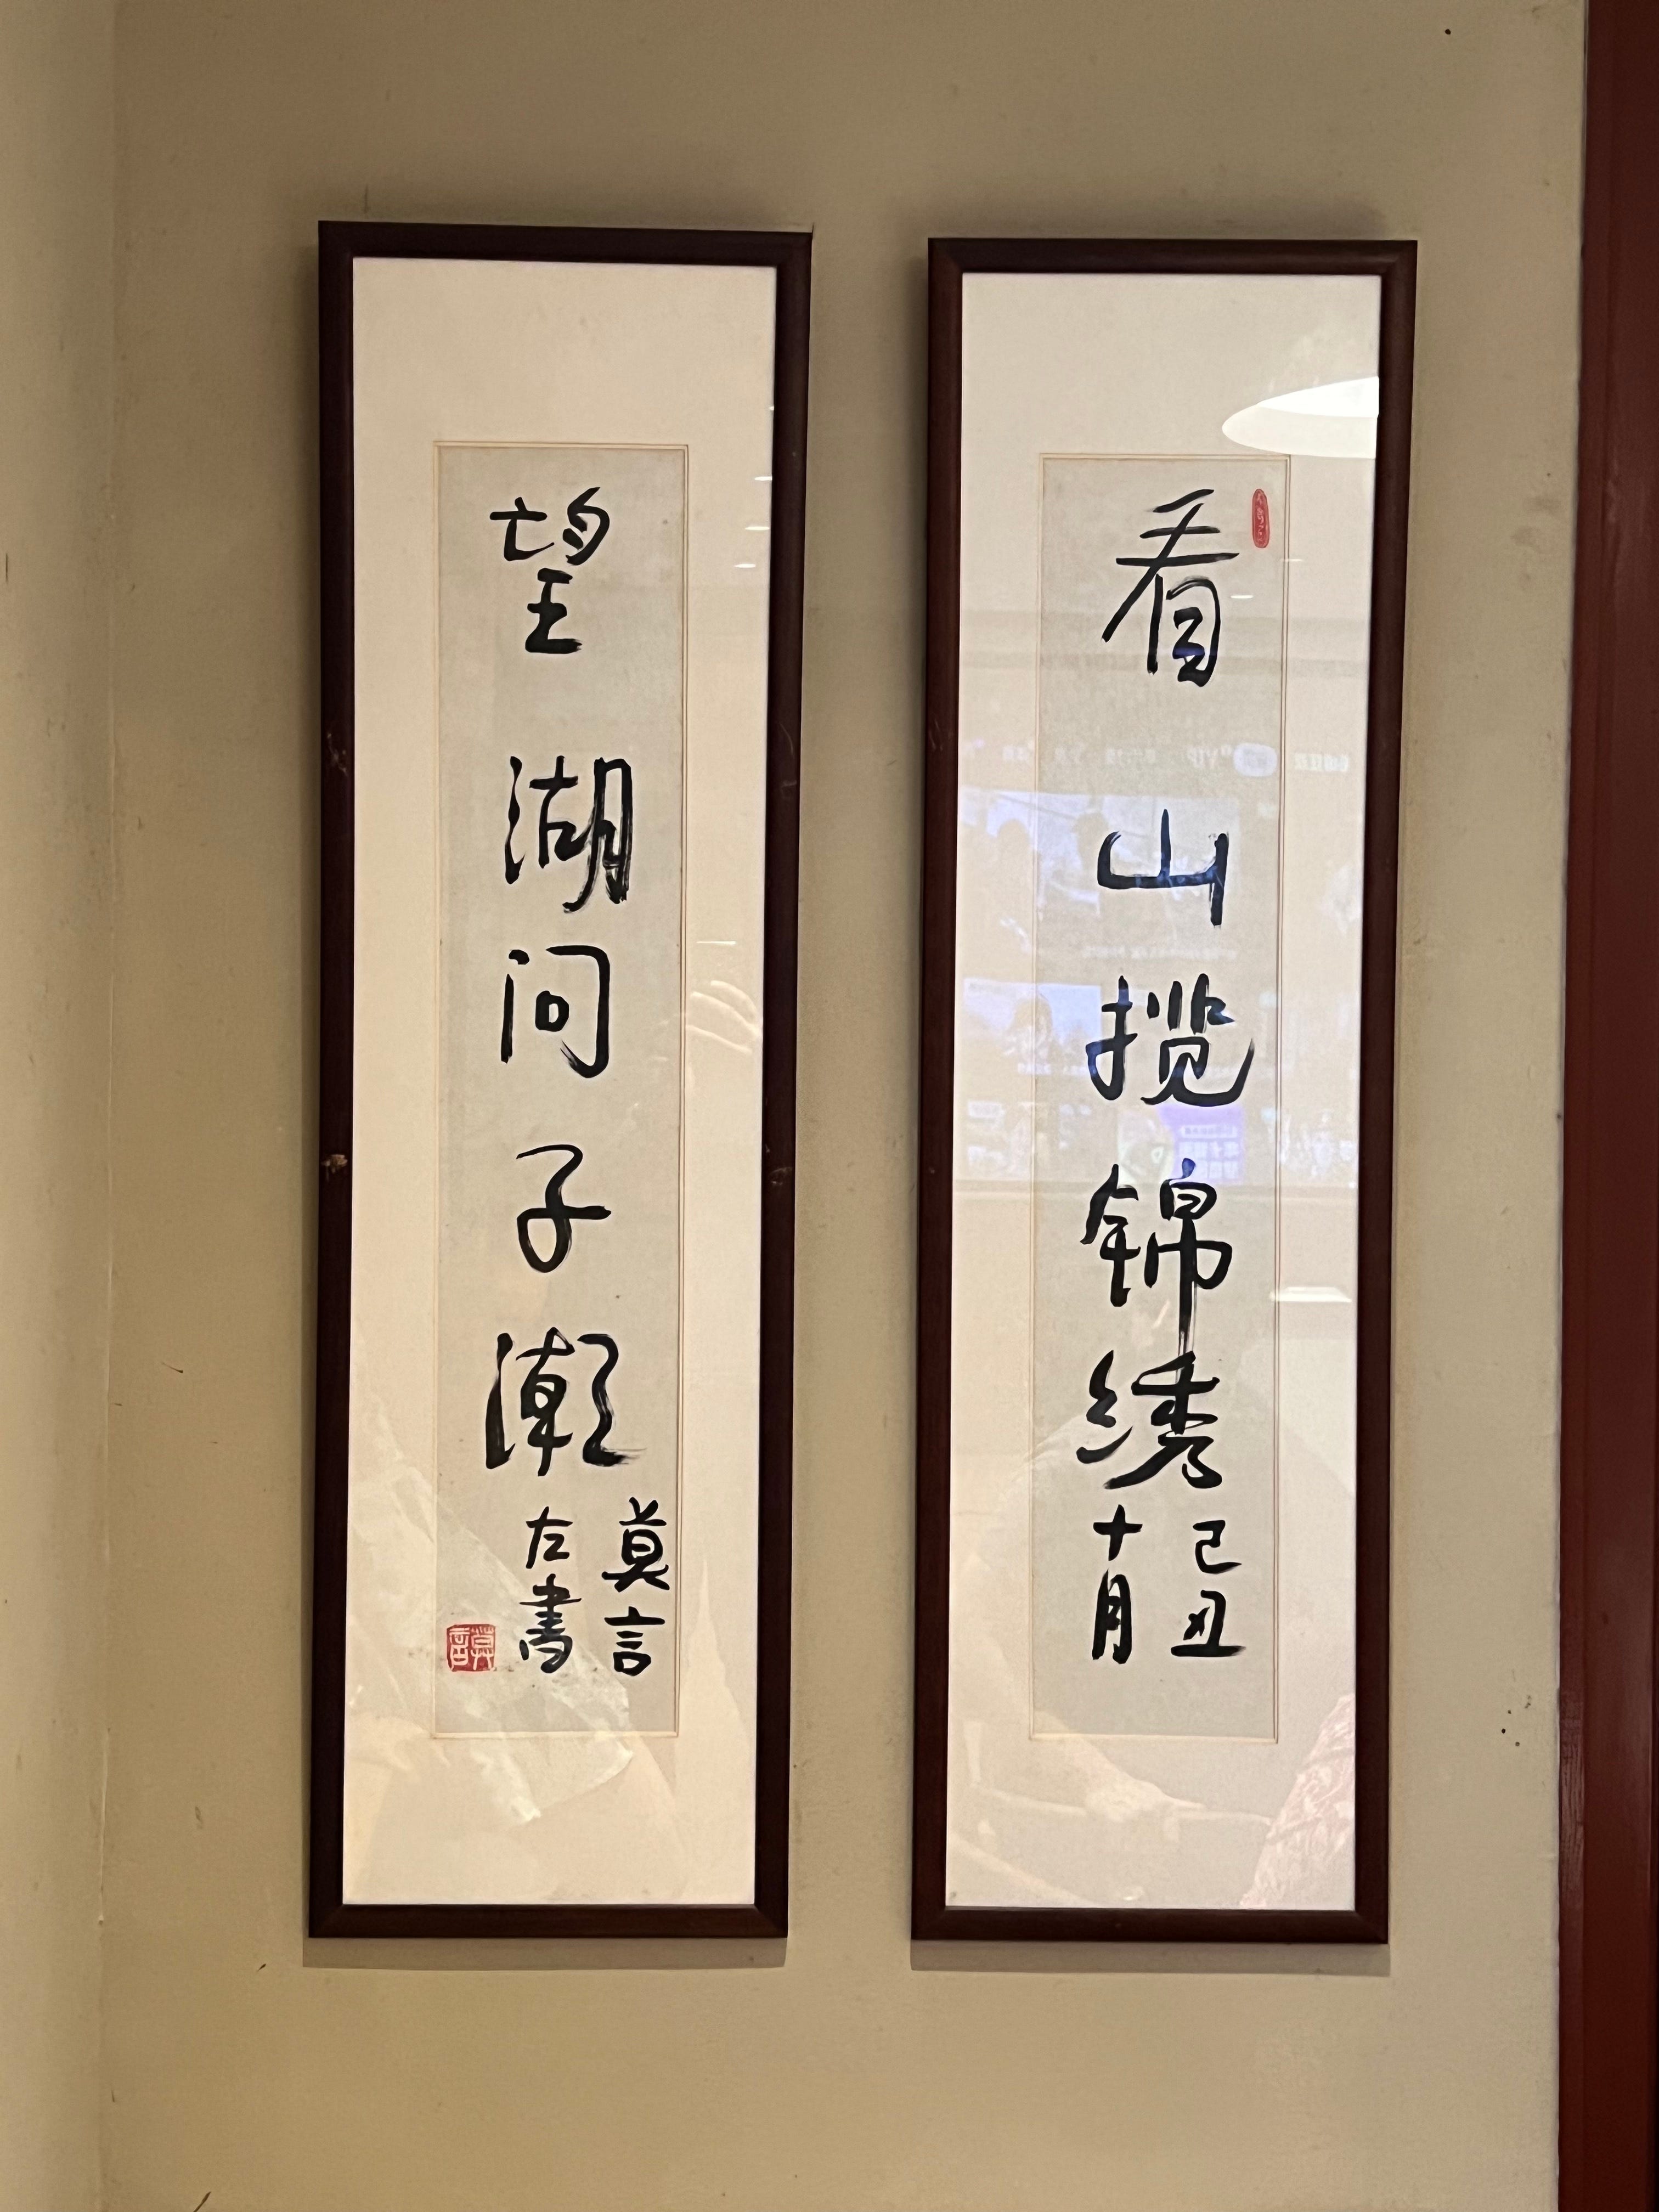 看山揽锦绣
己丑
十月
望湖问子潮
莫言
左書
莫言